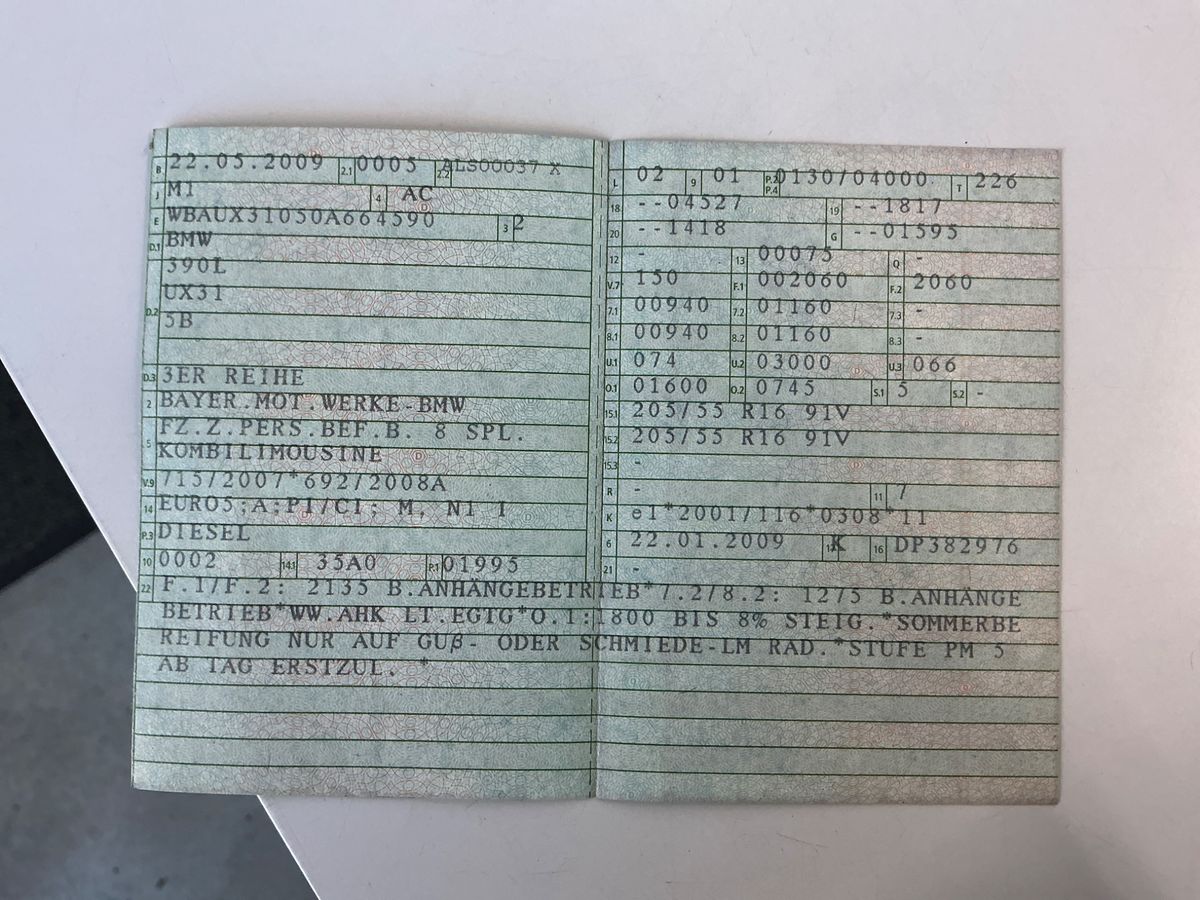 B 22.05.2009 2.1 0005 2.2 ALS00037 X
J M1 4 AC
E WBAUX31050A664590 3 2
D.1 BMW
390L
UX31
D.2
5B
D.3 3ER REIHE
2 BAYER.MOT.WERKE-BMW
FZ.Z.PERS.BEF.B. 8 SPL.
5 KOMBILIMOUSINE
V.9 715/2007*692/2008A
14 EURO5;A;PI/CI; M, N1 I
P.3 DIESEL
10 0002 14.1 35A0 P.1 01995
L 02 9 01 P.2 P.4 0130/04000 T 226
18 --04527 19 --1817
20 --1418 G --01595
12 - 13 00075 Q -
V.7 150 F.1 002060 F.2 2060
7.1 00940 7.2 01160 7.3 -
8.1 00940 8.2 01160 8.3 -
U.1 074 U.2 03000 U.3 066
O.1 01600 O.2 0745 S.1 5 S.2 -
15.1 205/55 R16 91V
15.2 205/55 R16 91V
15.3 -
R - 11 7
K e1*2001/116*0308*11
6 22.01.2009 17 K 16 DP382976
21 -
22 F.1/F.2: 2135 B.ANHÄNGEBETRIEB*7.2/8.2: 1275 B.ANHÄNGE
BETRIEB*WW.AHK LT.EGTG*O.1:1800 BIS 8% STEIG.*SOMMERBE
REIFUNG NUR AUF GUß- ODER SCHMIEDE-LM RAD.*STUFE PM 5
AB TAG ERSTZUL. *